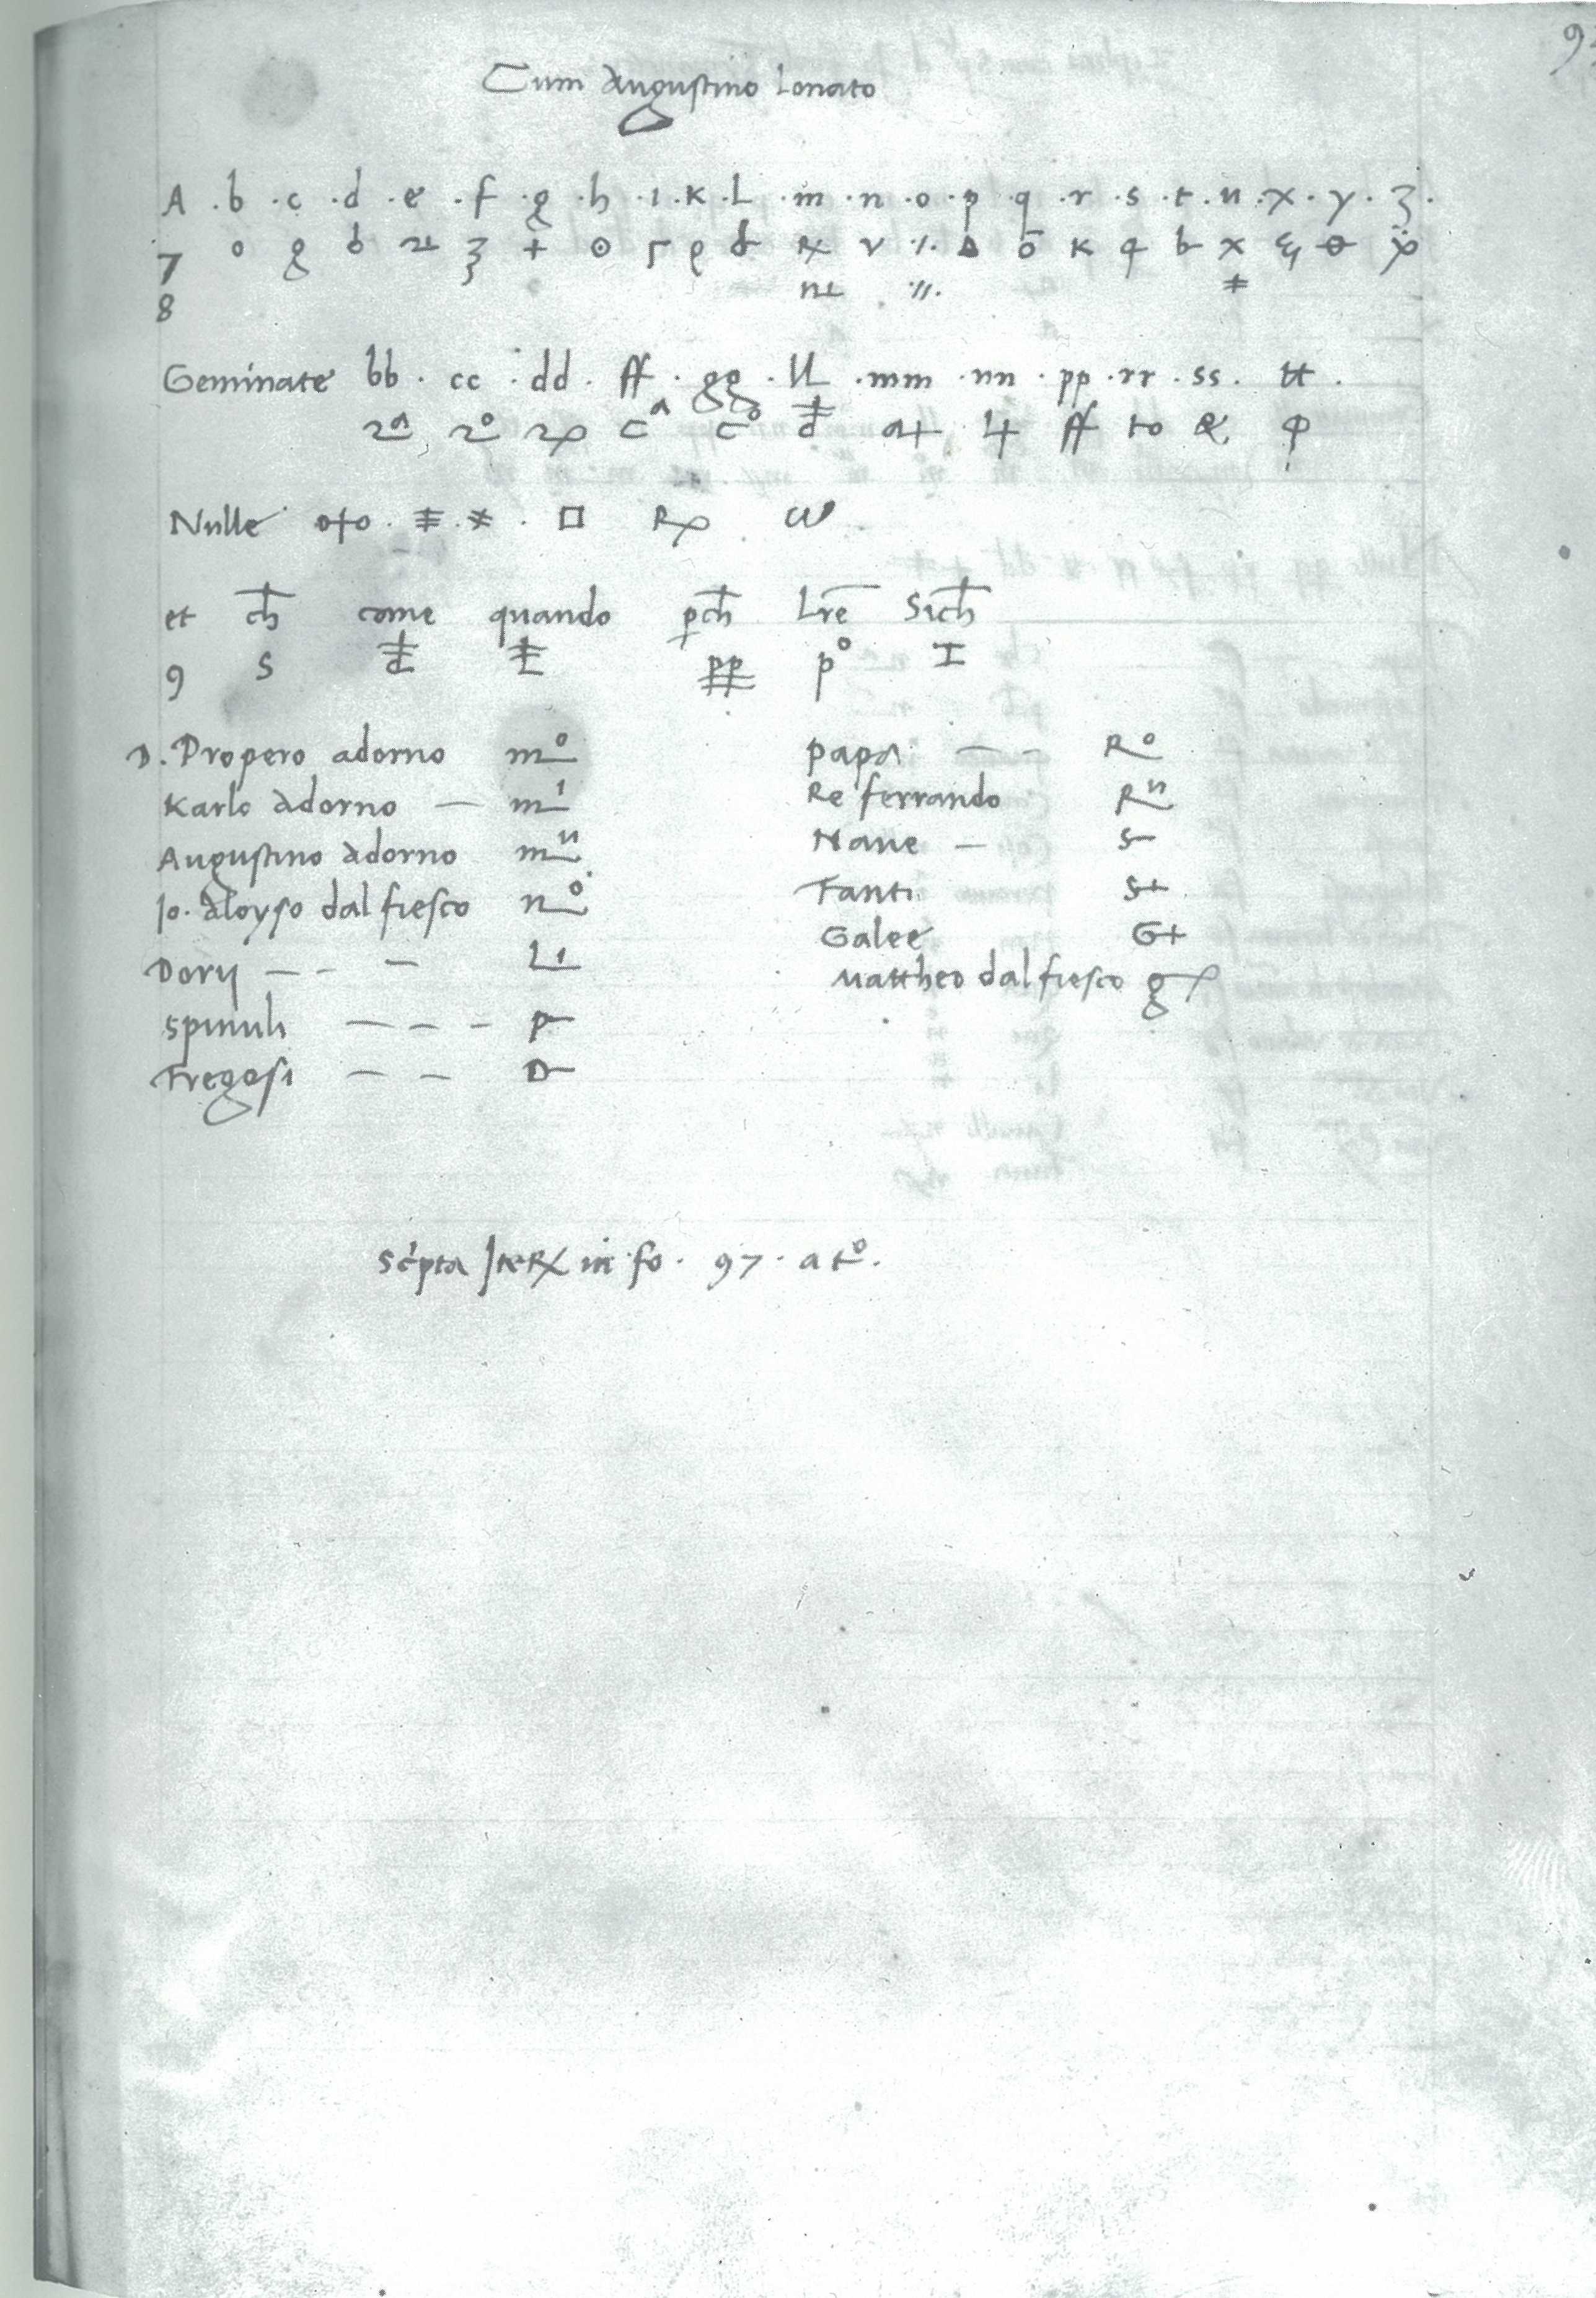 9
Cum Augustino Lonato
A . b . c . d . e . f . g . h . i . k . L . m . n . o . p . q . r . s . t . u . x . y . z .
7 o g + v Δ ō k q b x
8 #
Geminate bb . cc . dd . ff . gg . ll . mm . nn . pp . rr . ss . tt .
2ᵃ 2° cᵃ c° a+ 4 ff to & φ
Nulle o+o . □ ω
et ch̄ come quando ꝑch̄ Lr̄e Sich̄
9 s p° I
D. Propero adorno m°
Karlo adorno — mⁱ
Augustino adorno mᵘ
Jo. Aloyso dal fiesco n°
Dorij — — — L¹
Spinuli — — — p
Fregosi — — D
papa — — R°
Re ferrando Rᵘ
Naue — s
Fanti s+
Galee G+
Mattheo dal fiesco g
in fo . 97 . a t° .